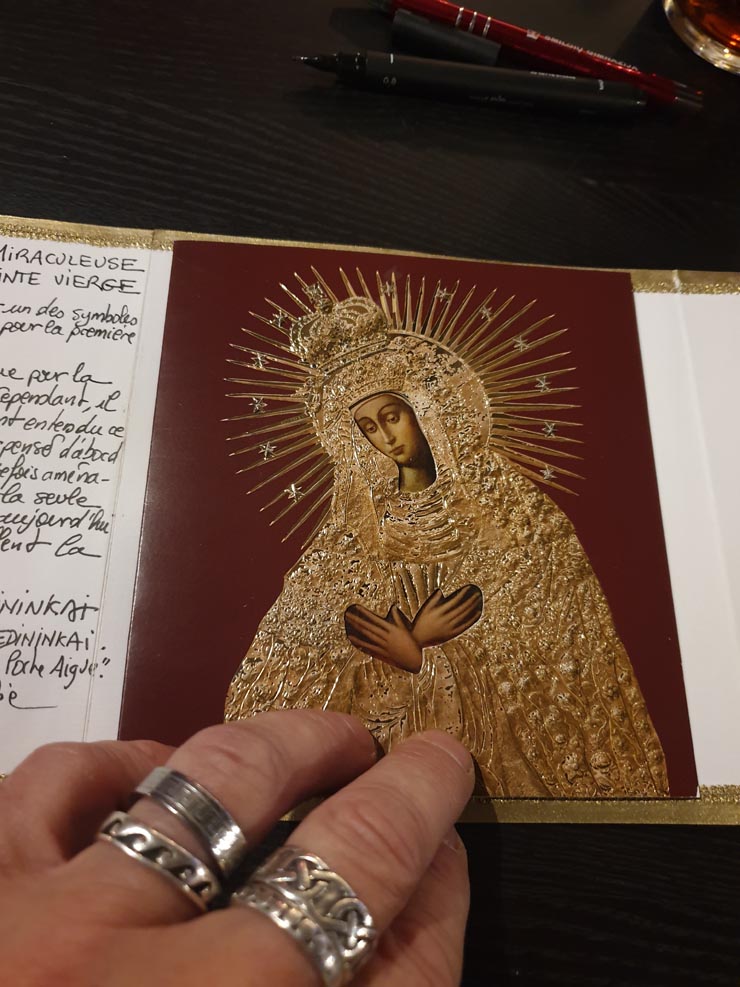 MIRACULEUSE
INTE VIERGE
un des symboles
pour la première
ue pour la
cependant, il
nt entendu ce
pensé d'abord
tefois aména-
la seule
aujourd'hui
lent la
ININKAI
EDININKAI
Porte Aigue".
0.8